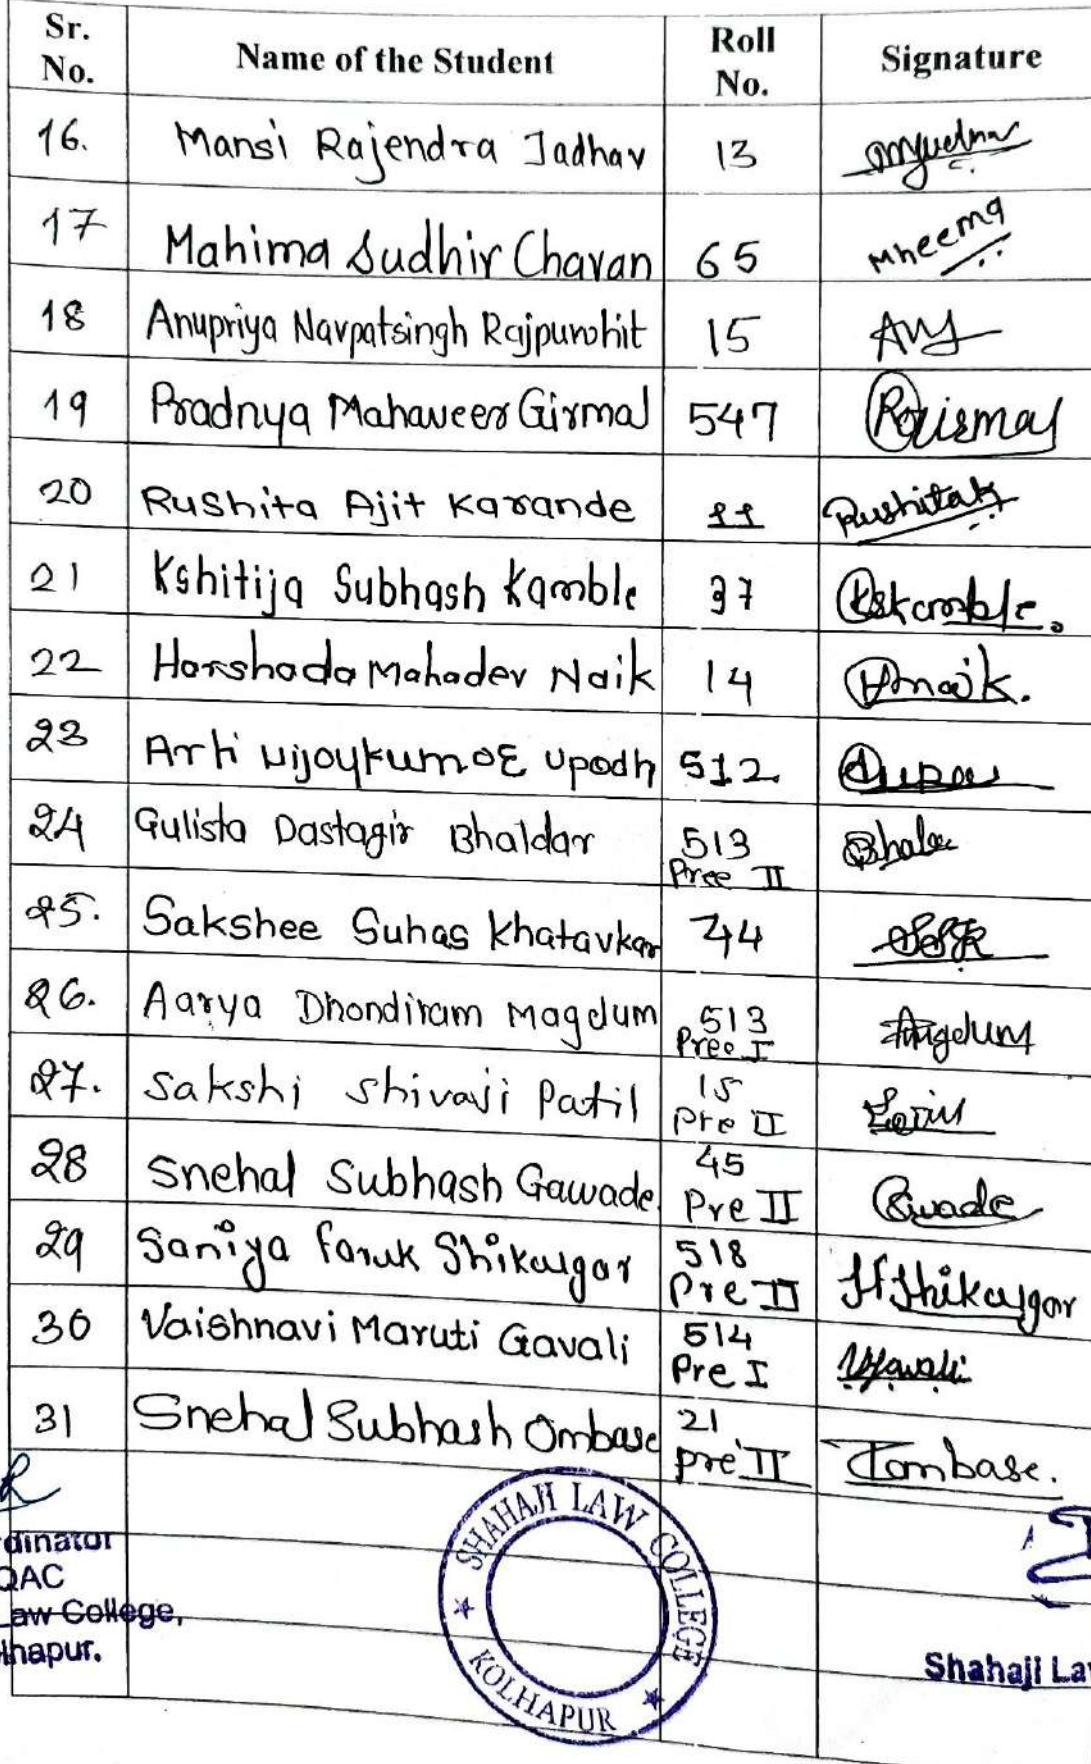 Sr. No. Name of the Student Roll No. Signature
16. Mansi Rajendra Jadhav 13
17 Mahima Sudhir Chavan 65 Mheema
18 Anupriya Narpatsingh Rajpurohit 15
19 Pradnya Mahaveer Girmal 547
20 Rushita Ajit Karande 11 Rushitak
21 Kshitija Subhash Kamble 37 Kskamble.
22 Harshada Mahadev Naik 14 Hnaik.
23 Arti Vijaykumar Upadh 512
24 Gulista Dastagir Bhaldar 513 Pree II
25. Sakshee Suhas Khatavkar 44
26. Aarya Dhondiram Magdum 513 Pree I
27. Sakshi Shivaji Patil 15 Pre II
28 Snehal Subhash Gawade 45 Pre II
29 Saniya Faruk Shikalgar 518 Pre II
30 Vaishnavi Maruti Gavali 514 Pre I
31 Snehal Subhash Ombase 21 Pre II
dinator
QAC
Law College,
lhapur.
SHAHAJI LAW COLLEGE
KOLHAPUR
Shahaji La